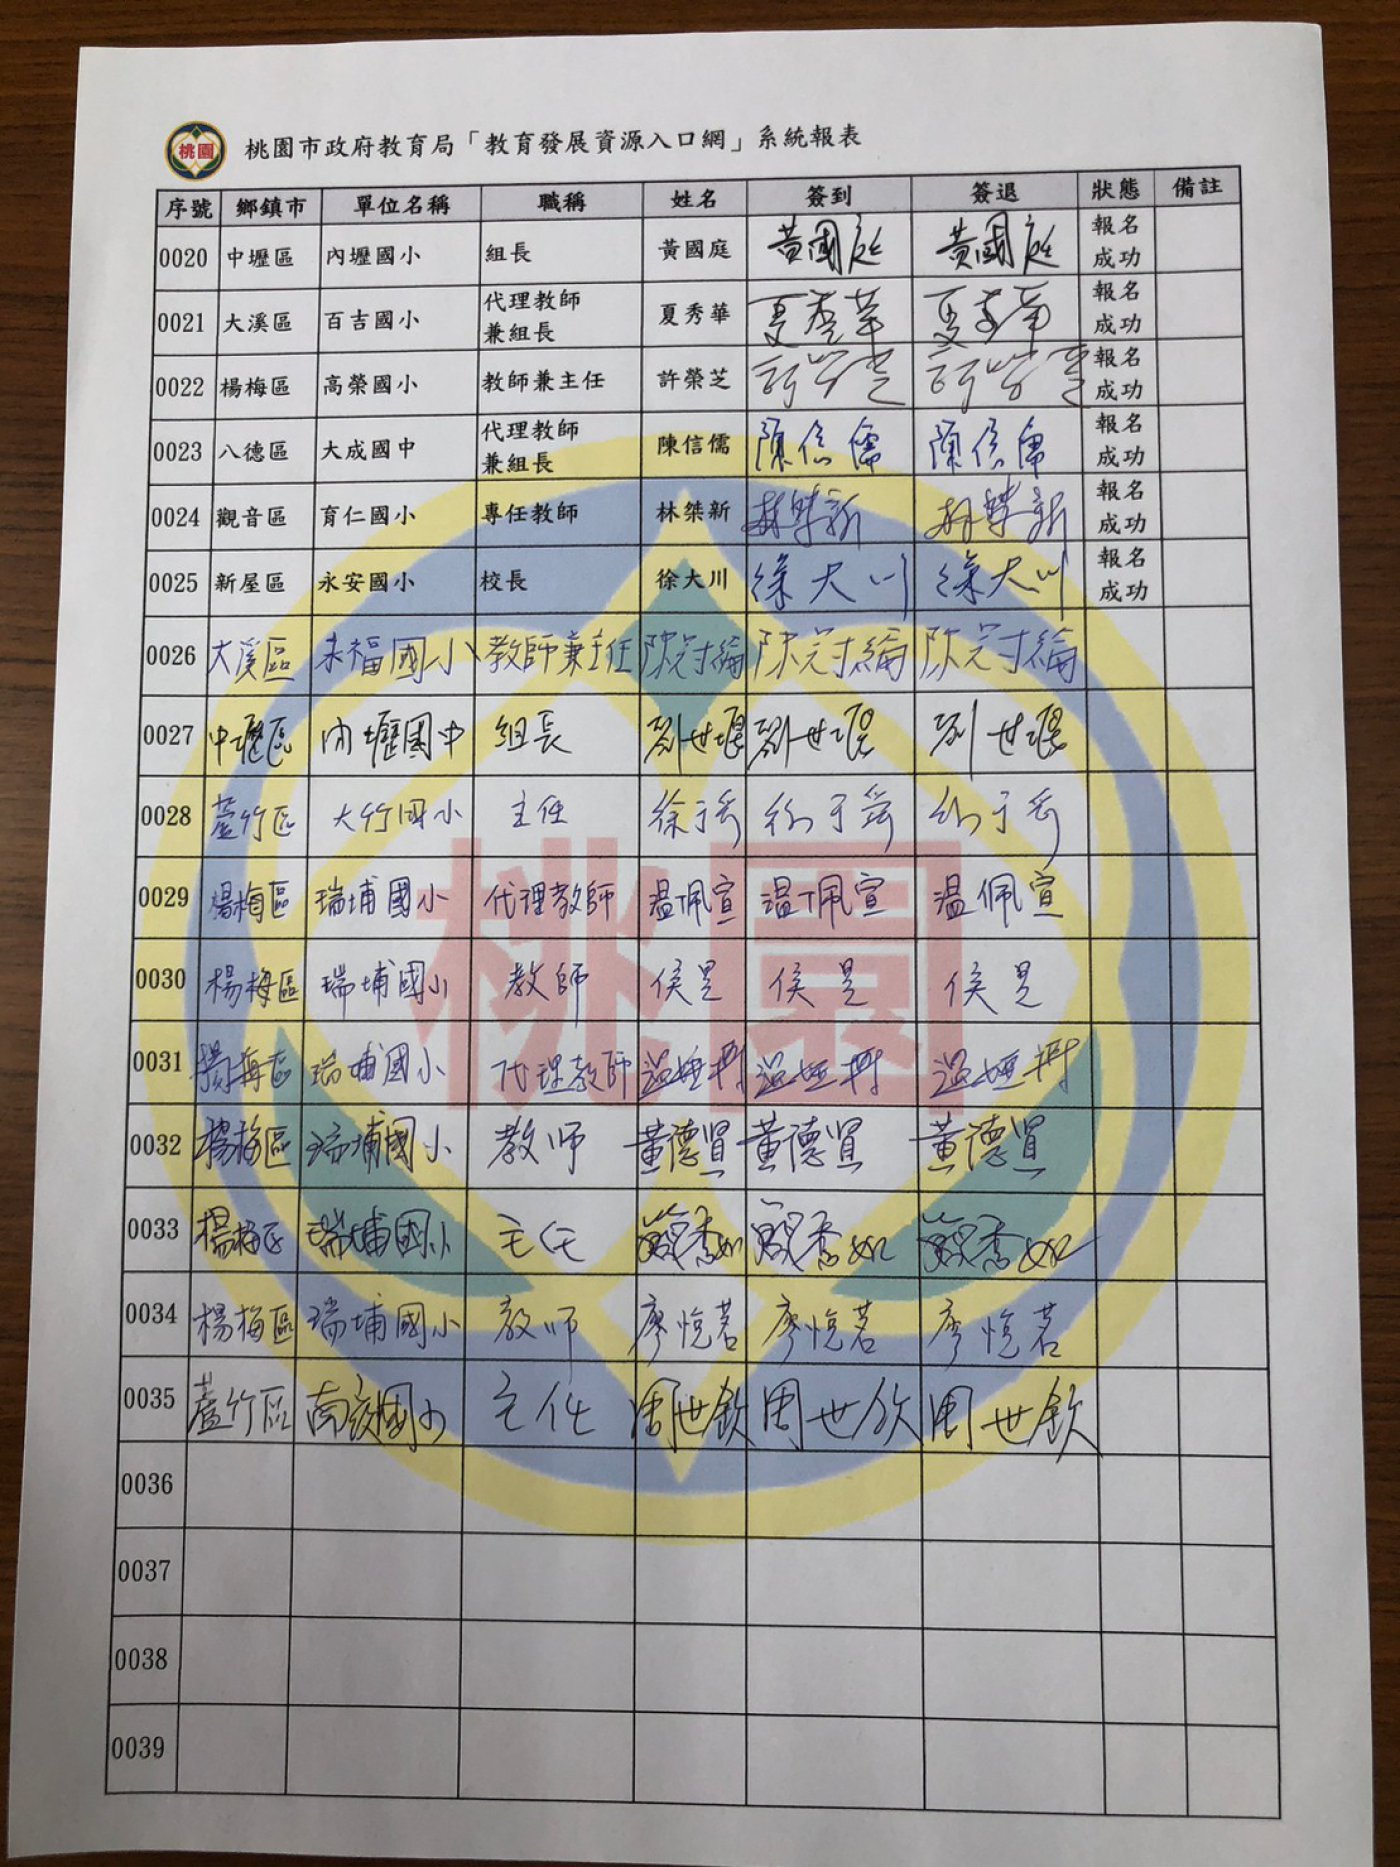 桃園 桃園市政府教育局「教育發展資源入口網」系統報表
序號 鄉鎮市 單位名稱 職稱 姓名 簽到 簽退 狀態 備註
0020 中壢區 內壢國小 組長 黃國庭 黃國庭 黃國庭 報名成功
0021 大溪區 百吉國小 代理教師兼組長 夏秀華 夏秀華 夏秀華 報名成功
0022 楊梅區 高榮國小 教師兼主任 許榮芝 許榮芝 許榮芝 報名成功
0023 八德區 大成國中 代理教師兼組長 陳信儒 陳信儒 陳信儒 報名成功
0024 觀音區 育仁國小 專任教師 林桀新 林桀新 林桀新 報名成功
0025 新屋區 永安國小 校長 徐大川 徐大川 徐大川 報名成功
0026 大溪區 未福國小 教師兼主任 陳冠綸 陳冠綸 陳冠綸
0027 中壢區 內壢國中 組長 劉世 劉世 刘世
0028 蘆竹區 大竹國小 主任 徐于 徐于 徐于
0029 楊梅區 瑞埔國小 代理教師 温珮宣 温珮宣 温佩宣
0030 楊梅區 瑞埔國小 教師 侯昱 侯昱 侯昱
0031 楊梅區 瑞埔國小 代理教師 温 温 温
0032 楊梅區 瑞埔國小 教师 董德賢 董德賢 董德賢
0033 楊梅區 瑞埔國小 主任 簡秀如 簡秀如 簡秀如
0034 楊梅區 瑞埔國小 教师 廖悅茗 廖悅茗 廖悅茗
0035 蘆竹區 南崁國小 主任 周世欽 周世欽 周世欽
0036
0037
0038
0039
桃園